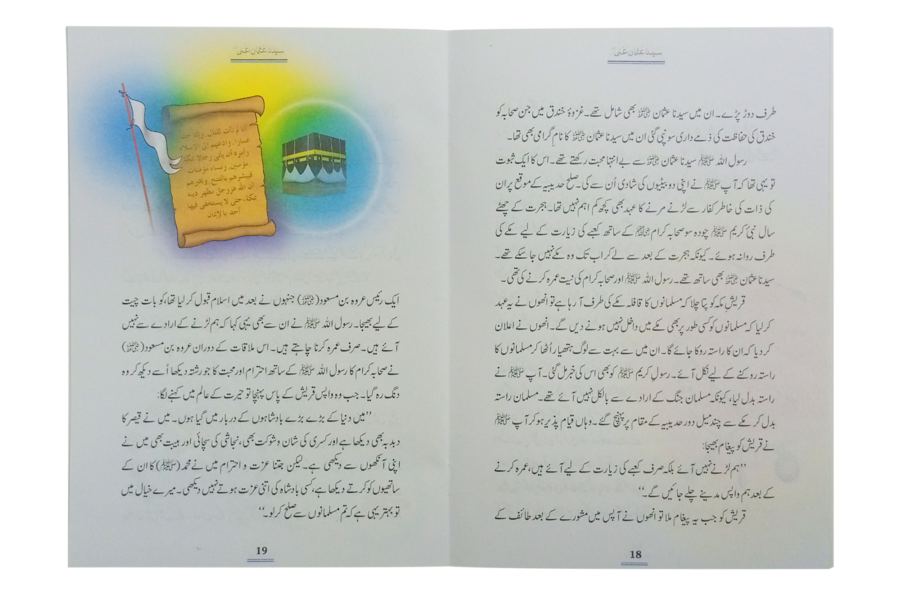 سیدنا عثمان غنیؓ
طرف دوڑ پڑے۔ ان میں سیدنا عثمان ﷜ بھی شامل تھے۔ غزوۂ خندق میں جن صحابہ کو
خندق کی حفاظت کی ذمے داری سونپی گئی ان میں سیدنا عثمان ﷜ کا نام گرامی بھی تھا۔
رسول اللہ ﷺ سیدنا عثمان ﷜ سے بے انتہا محبت رکھتے تھے۔ اس کا ایک ثبوت
تو یہی تھا کہ آپ ﷺ نے اپنی دو بیٹیوں کی شادی اُن سے کی۔ صلح حدیبیہ کے موقع پر ان
کی ذات کی خاطر کفار سے لڑنے مرنے کا عہد بھی کچھ کم اہم نہیں تھا۔ ہجرت کے چھٹے
سال نبی کریم ﷺ چودہ سو صحابہ کرام ﷢ کے ساتھ کعبے کی زیارت کے لیے مکے کی
طرف روانہ ہوئے۔ کیونکہ ہجرت کے بعد سے لے کر اب تک وہ مکے نہیں جا سکے تھے۔
سیدنا عثمان ﷜ بھی ساتھ تھے۔ رسول اللہ ﷺ اور صحابہ کرام کی نیت عمرہ کرنے کی تھی۔
قریشِ مکہ کو پتا چلا کہ مسلمانوں کا قافلہ مکے کی طرف آ رہا ہے تو انھوں نے یہ عہد
کر لیا کہ مسلمانوں کو کسی طور پر بھی مکے میں داخل نہیں ہونے دیں گے۔ انھوں نے اعلان
کر دیا کہ ان کا راستہ روکا جائے گا۔ ان میں سے بہت سے لوگ ہتھیار اُٹھا کر مسلمانوں کا
راستہ روکنے کے لیے نکل آئے۔ رسولِ کریم ﷺ کو بھی اس کی خبر مل گئی۔ آپ ﷺ نے
راستہ بدل لیا، کیونکہ مسلمان جنگ کے ارادے سے بالکل نہیں آئے تھے۔ مسلمان راستہ
بدل کر مکے سے چند میل دور حدیبیہ کے مقام پر پہنچ گئے۔ وہاں قیام پذیر ہو کر آپ ﷺ
نے قریش کو پیغام بھیجا:
’’ہم لڑنے نہیں آئے بلکہ صرف کعبے کی زیارت کے لیے آئے ہیں، عمرہ کرنے
کے بعد ہم واپس مدینے چلے جائیں گے۔‘‘
قریش کو جب یہ پیغام ملا تو انھوں نے آپس میں مشورے کے بعد طائف کے
18
سیدنا عثمان غنیؓ
ایک رئیس عروہ بن مسعود(﷜) جنہوں نے بعد میں اسلام قبول کر لیا تھا، کو بات چیت
کے لیے بھیجا۔ رسول اللہ ﷺ نے ان سے بھی یہی کہا کہ ہم لڑنے کے ارادے سے نہیں
آئے ہیں۔ صرف عمرہ کرنا چاہتے ہیں۔ اس ملاقات کے دوران عروہ بن مسعود(﷜)
نے صحابہ کرام کا رسول اللہ ﷺ کے ساتھ احترام اور محبت کا جو رشتہ دیکھا اُسے دیکھ کر وہ
دنگ رہ گیا۔ جب وہ واپس قریش کے پاس پہنچا تو حیرت کے عالم میں کہنے لگا:
’’میں دنیا کے بڑے بڑے بادشاہوں کے دربار میں گیا ہوں۔ میں نے قیصر کا
دبدبہ بھی دیکھا ہے اور کسریٰ کی شان و شوکت بھی، نجاشی کی سچائی اور ہیبت بھی میں نے
اپنی آنکھوں سے دیکھی ہے۔ لیکن جتنا عزت و احترام میں نے محمد(ﷺ) کا ان کے
ساتھیوں کو کرتے دیکھا ہے، کسی بادشاہ کی اتنی عزت ہوتے نہیں دیکھی۔ میرے خیال میں
تو بہتر یہی ہے کہ تم مسلمانوں سے صلح کر لو۔‘‘
19